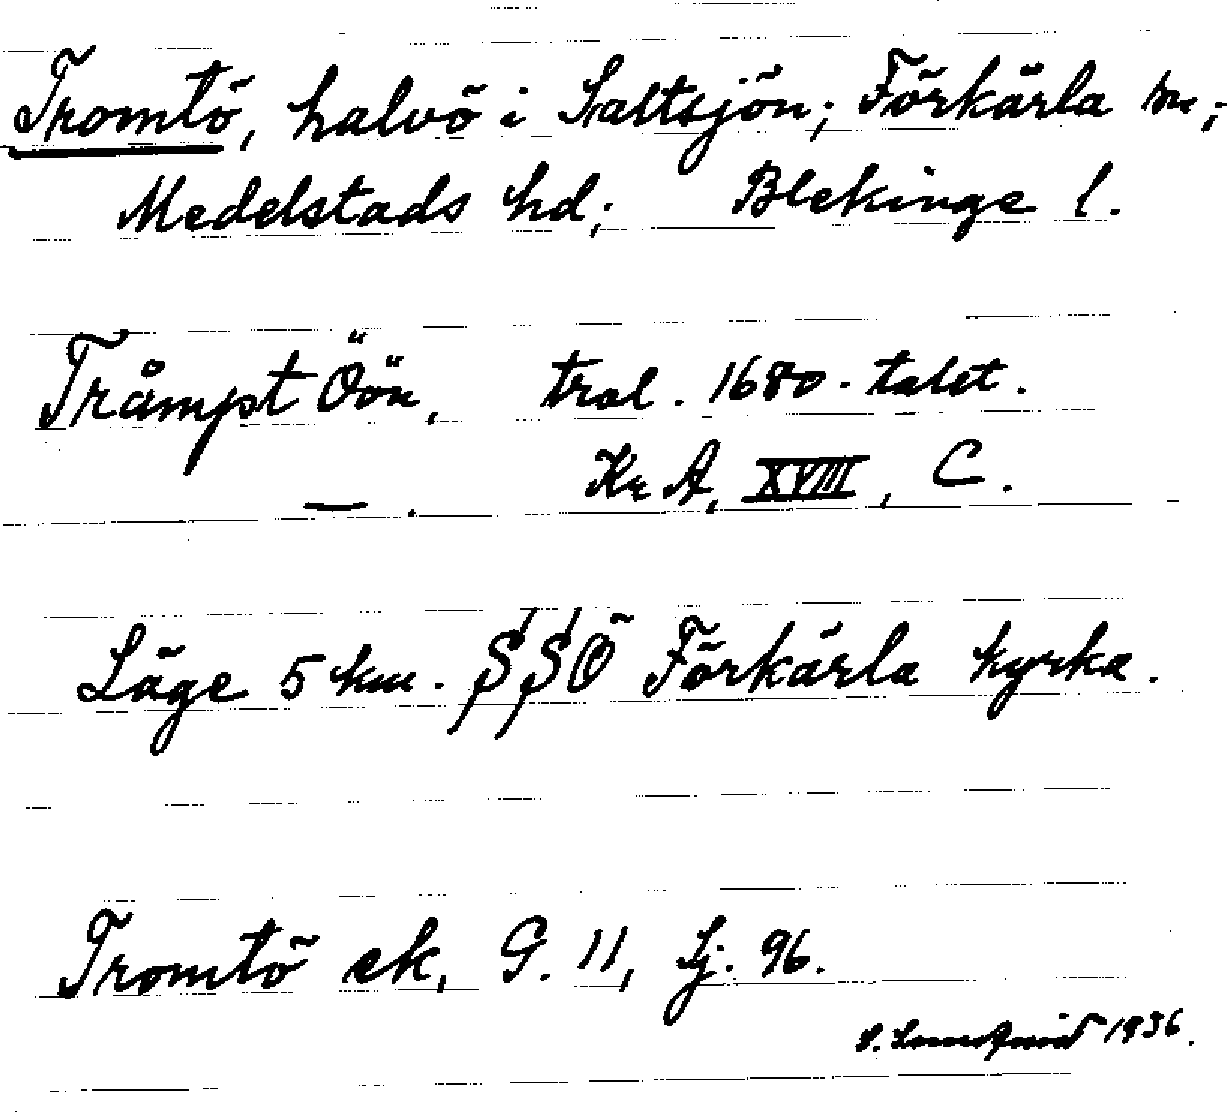 Tromtö, halvö i Saltsjön; Förkärla sn;
Medelstads hd; Blekinge l.
Tråmpt Öön, trol. 1680-talet.
—. KrA, XVIII, C.
Läge 5 km. SSÖ Förkärla kyrka.
Tromtö ek, G. 11, Sj. 96.
S. 1936.